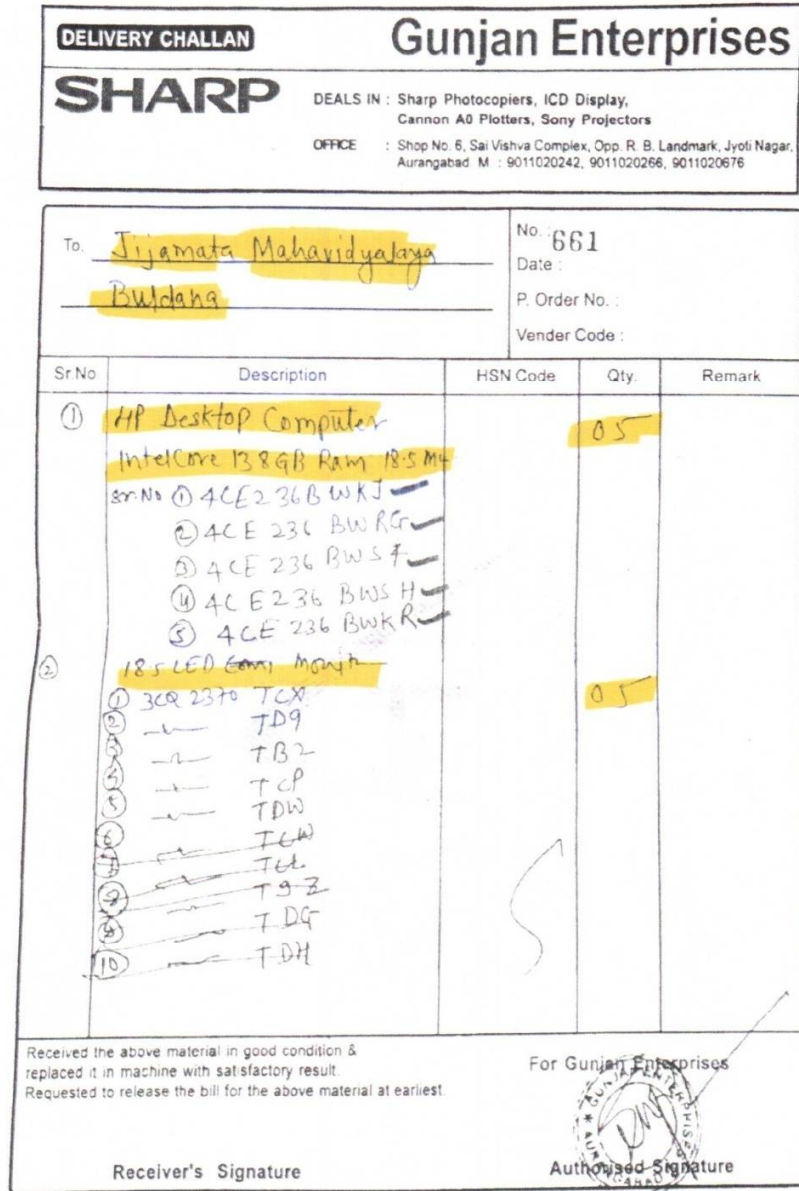 DELIVERY CHALLAN
Gunjan Enterprises
SHARP
DEALS IN : Sharp Photocopiers, ICD Display,
Cannon A0 Plotters, Sony Projectors
OFFICE : Shop No. 6, Sai Vishva Complex, Opp. R. B. Landmark, Jyoti Nagar,
Aurangabad M : 9011020242, 9011020266, 9011020676
To. Jijamata Mahavidyalaya
Buldana
No. : 661
Date :
P. Order No. :
Vender Code :
Sr.No Description HSN Code Qty. Remark
① HP Desktop Computer 05
Intel Core I3 8GB Ram 18.5
Sr.No ① 4CE236BWKJ
② 4CE 236 BWRG
③ 4CE 236 BWS
④ 4CE236 BWSH
⑤ 4CE 236 BWKR
② 18.5 LED 05
① 3CQ 2370 TCX
② TD9
③ TB2
TCP
⑤ TDW
⑥ TCW
T9Z
TDG
10 TDH
Received the above material in good condition &
replaced it in machine with satisfactory result.
Requested to release the bill for the above material at earliest.
For Gunjan Enterprises
GUNJAN ENTERPRISES
AURANGABAD
Receiver's Signature
Authorised Signature